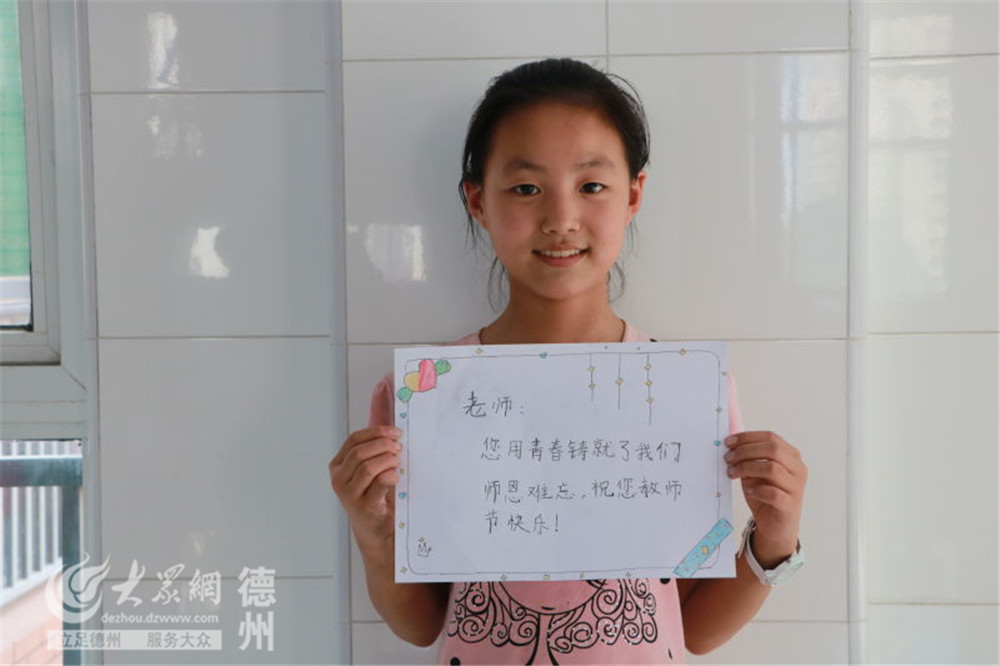 老师：
您用青春铸就了我们
师恩难忘，祝您教师
节快乐！
大众網
dezhou.dzwww.com
德州
立足德州 服务大众